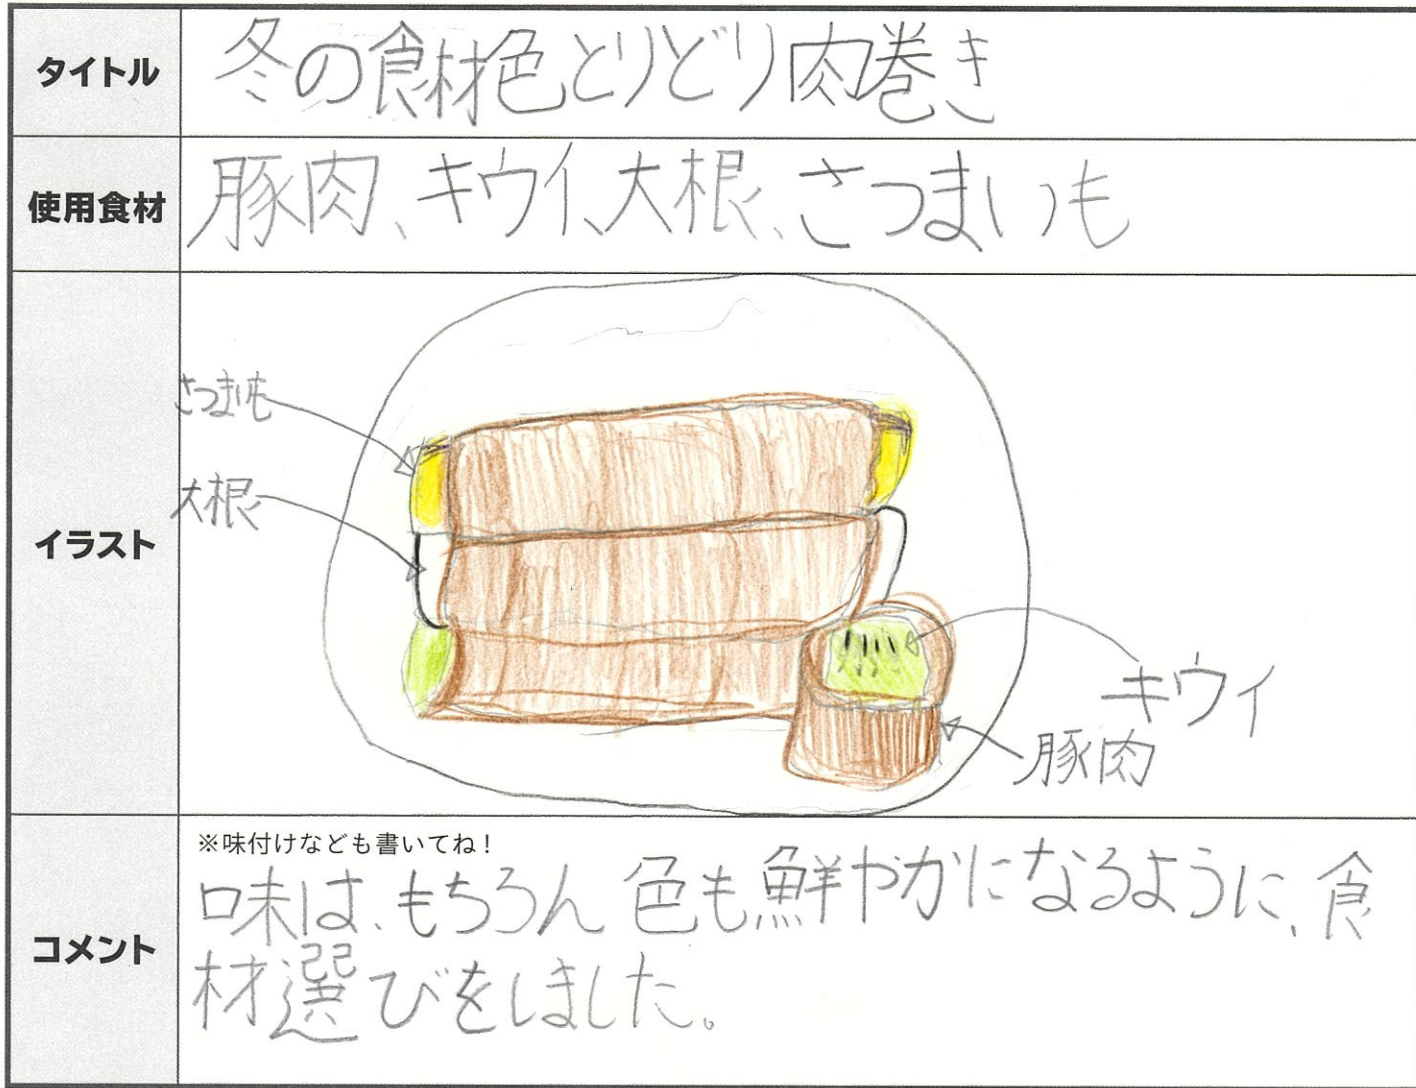 タイトル
冬の食材色とりどり肉巻き
使用食材
豚肉、キウイ、大根、さつまいも
イラスト
さつまいも
大根
キウイ
豚肉
コメント
※味付けなども書いてね！
味は、もちろん色も鮮やかになるように、食
材選びをしました。